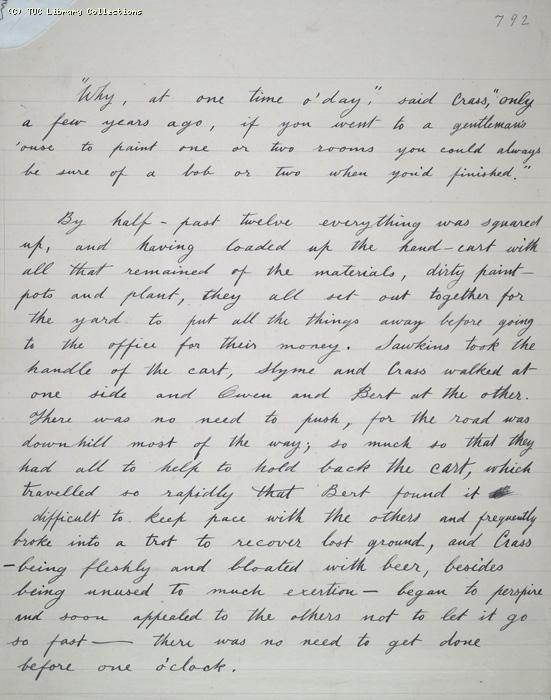 (C) TUC Library Collections
792
"Why, at one time o'day", said Crass, "only
a few years ago, if you went to a gentleman's
'ouse to paint one or two rooms you could always
be sure of a bob or two when you'd finished."
By half-past twelve everything was squared
up, and having loaded up the hand-cart with
all that remained of the materials, dirty paint-
pots and plant, they all set out together for
the yard to put all the things away before going
to the office for their money. Sawkins took the
handle of the cart, Slyme and Crass walked at
one side and Owen and Bert at the other.
There was no need to push, for the road was
downhill most of the way; so much so that they
had all to help to hold back the cart, which
travelled so rapidly that Bert found it
difficult to keep pace with the others and frequently
broke into a trot to recover lost ground, and Crass
-being fleshly and bloated with beer, besides
being unused to much exertion - began to perspire
and soon appealed to the others not to let it go
so fast — there was no need to get done
before one o'clock.